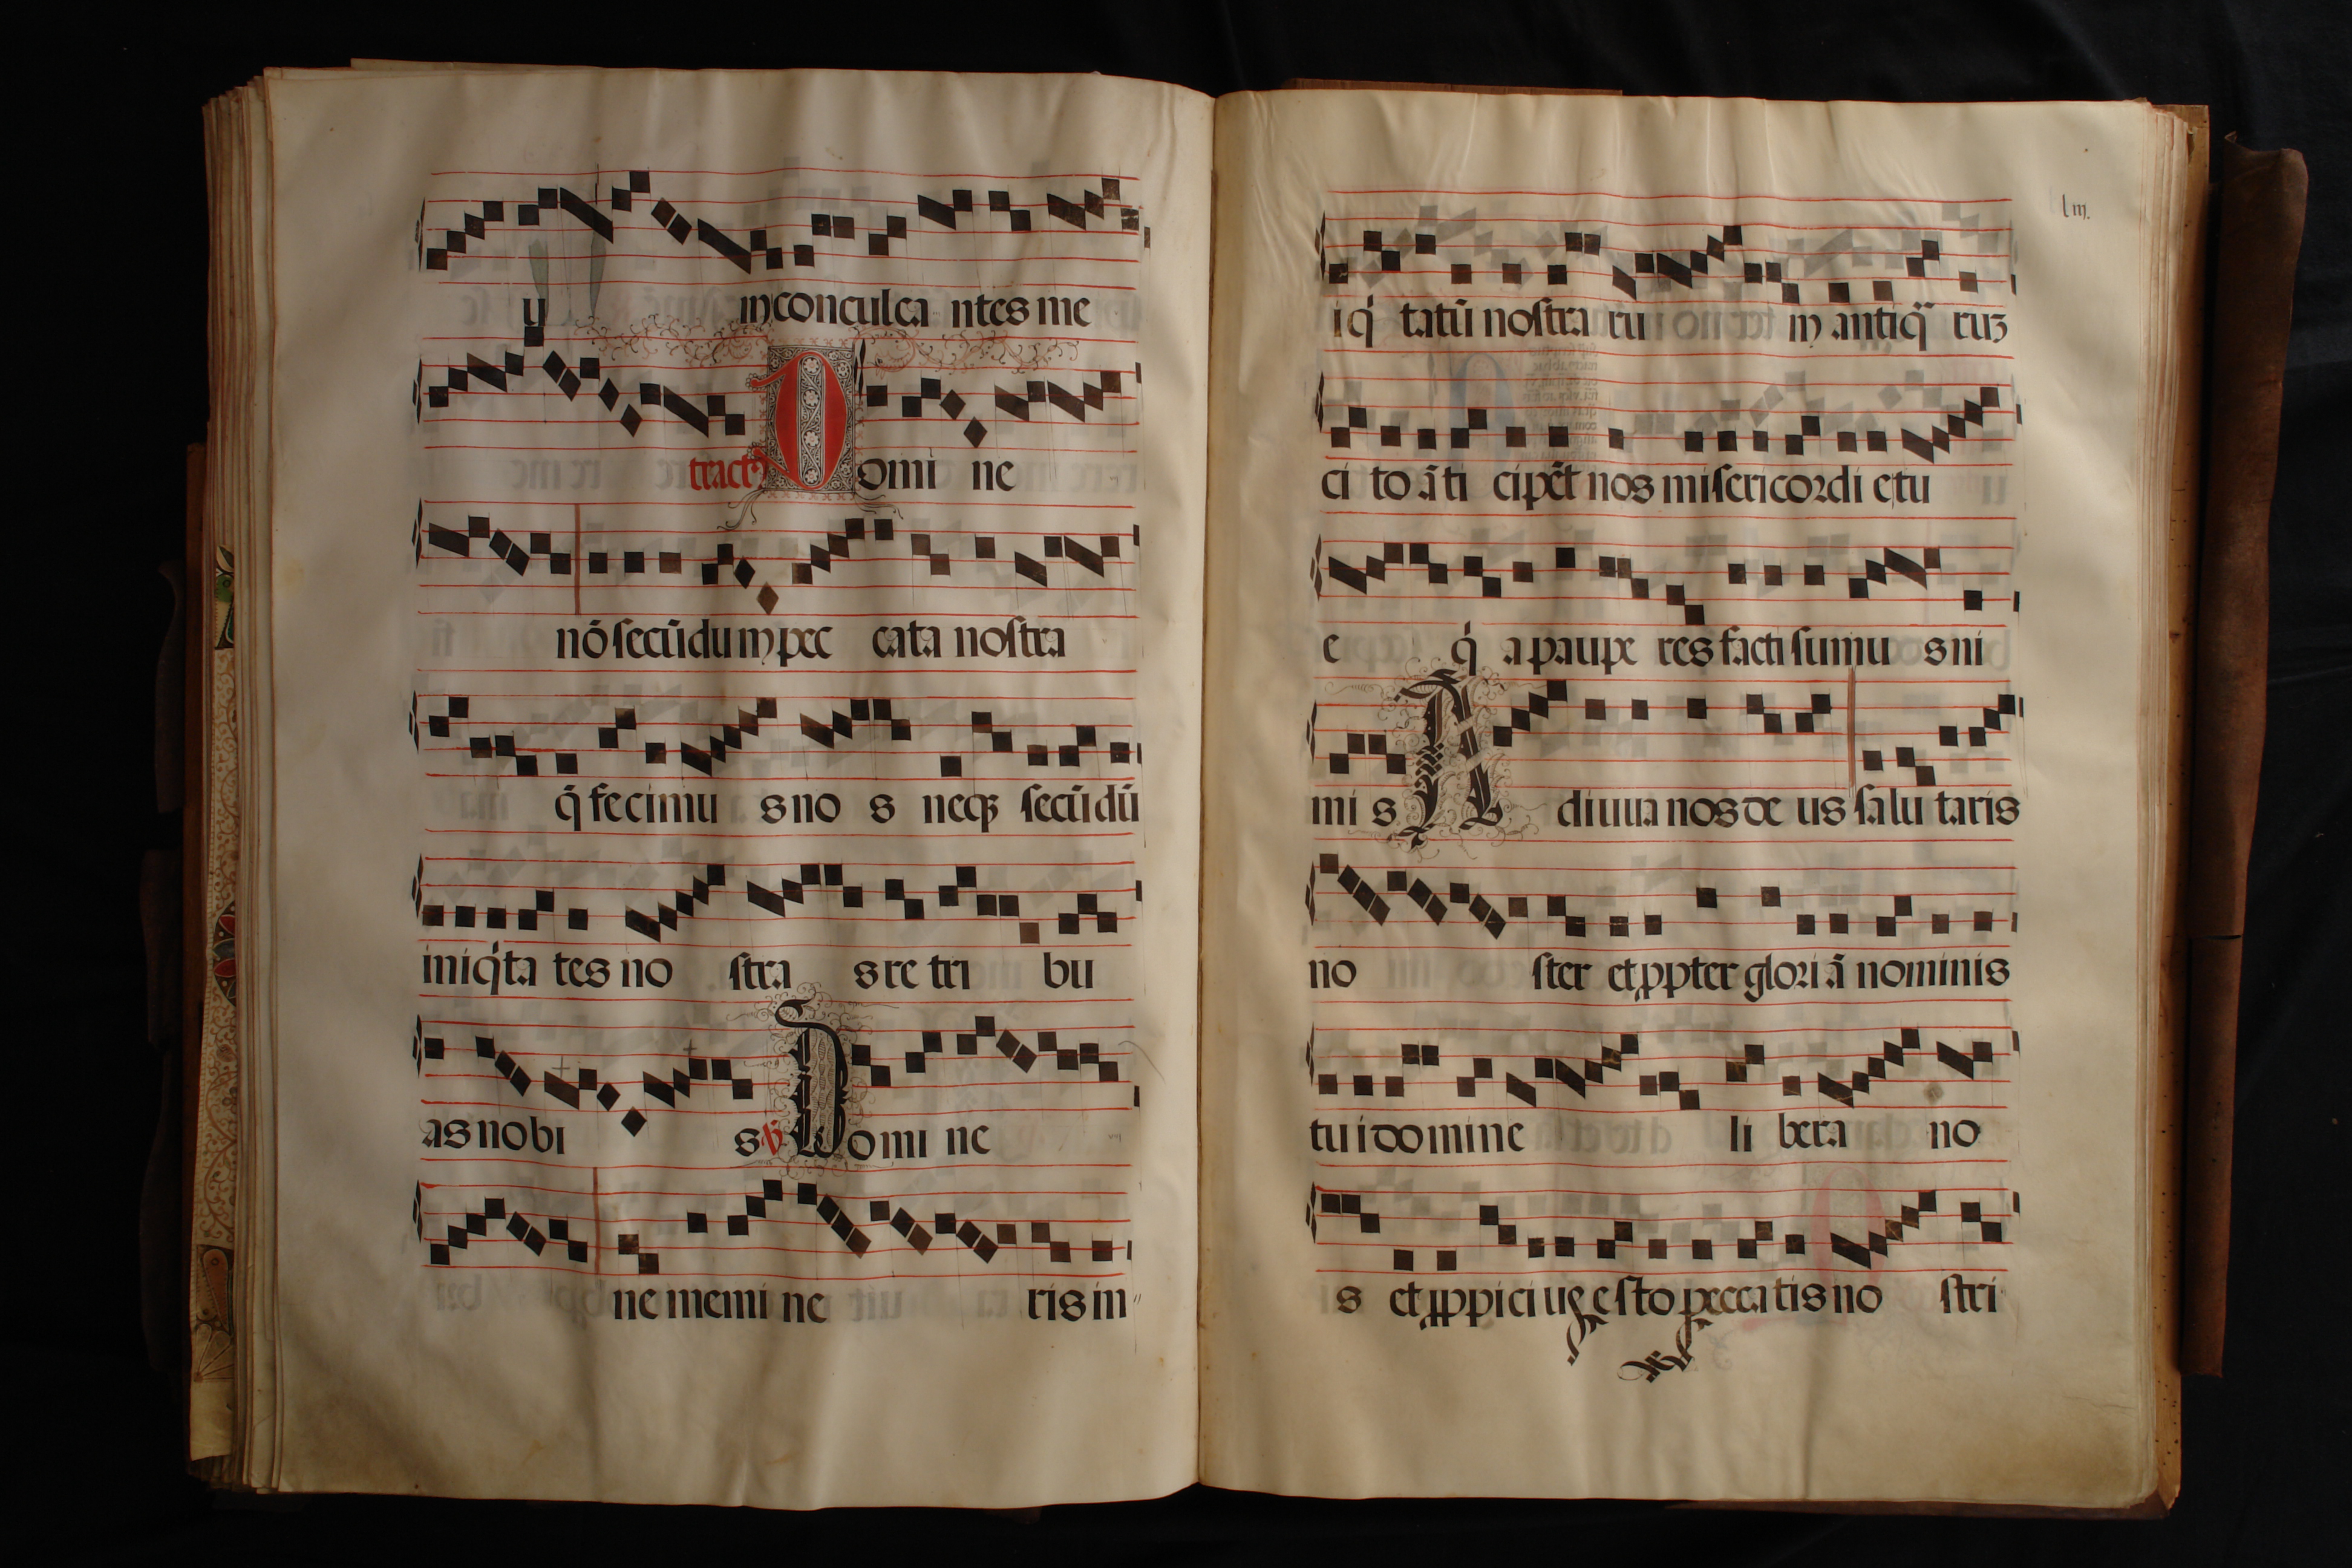 y in conculca ntes me
tractꝰ Domi ne
nō secūdum pec cata nostra
q̄ fecimu s no s neqꝫ secūdū
iniq̇ta tes no stra s re tri bu
as nobi s ℣ Domi ne
ne memi ne ris in
lııj.
iq̇ tatū nostra ru m antiq̈ ruꝫ
ci to āti cipēt nos misericordi e tu
e q̇ a paupe res facti sumu s ni
mi s Adiuua nos de us salu taris
no ster et ꝓpter glori ā nominis
tu i domine li bera no
s et ꝓpici ꝰ esto peccatis no stri